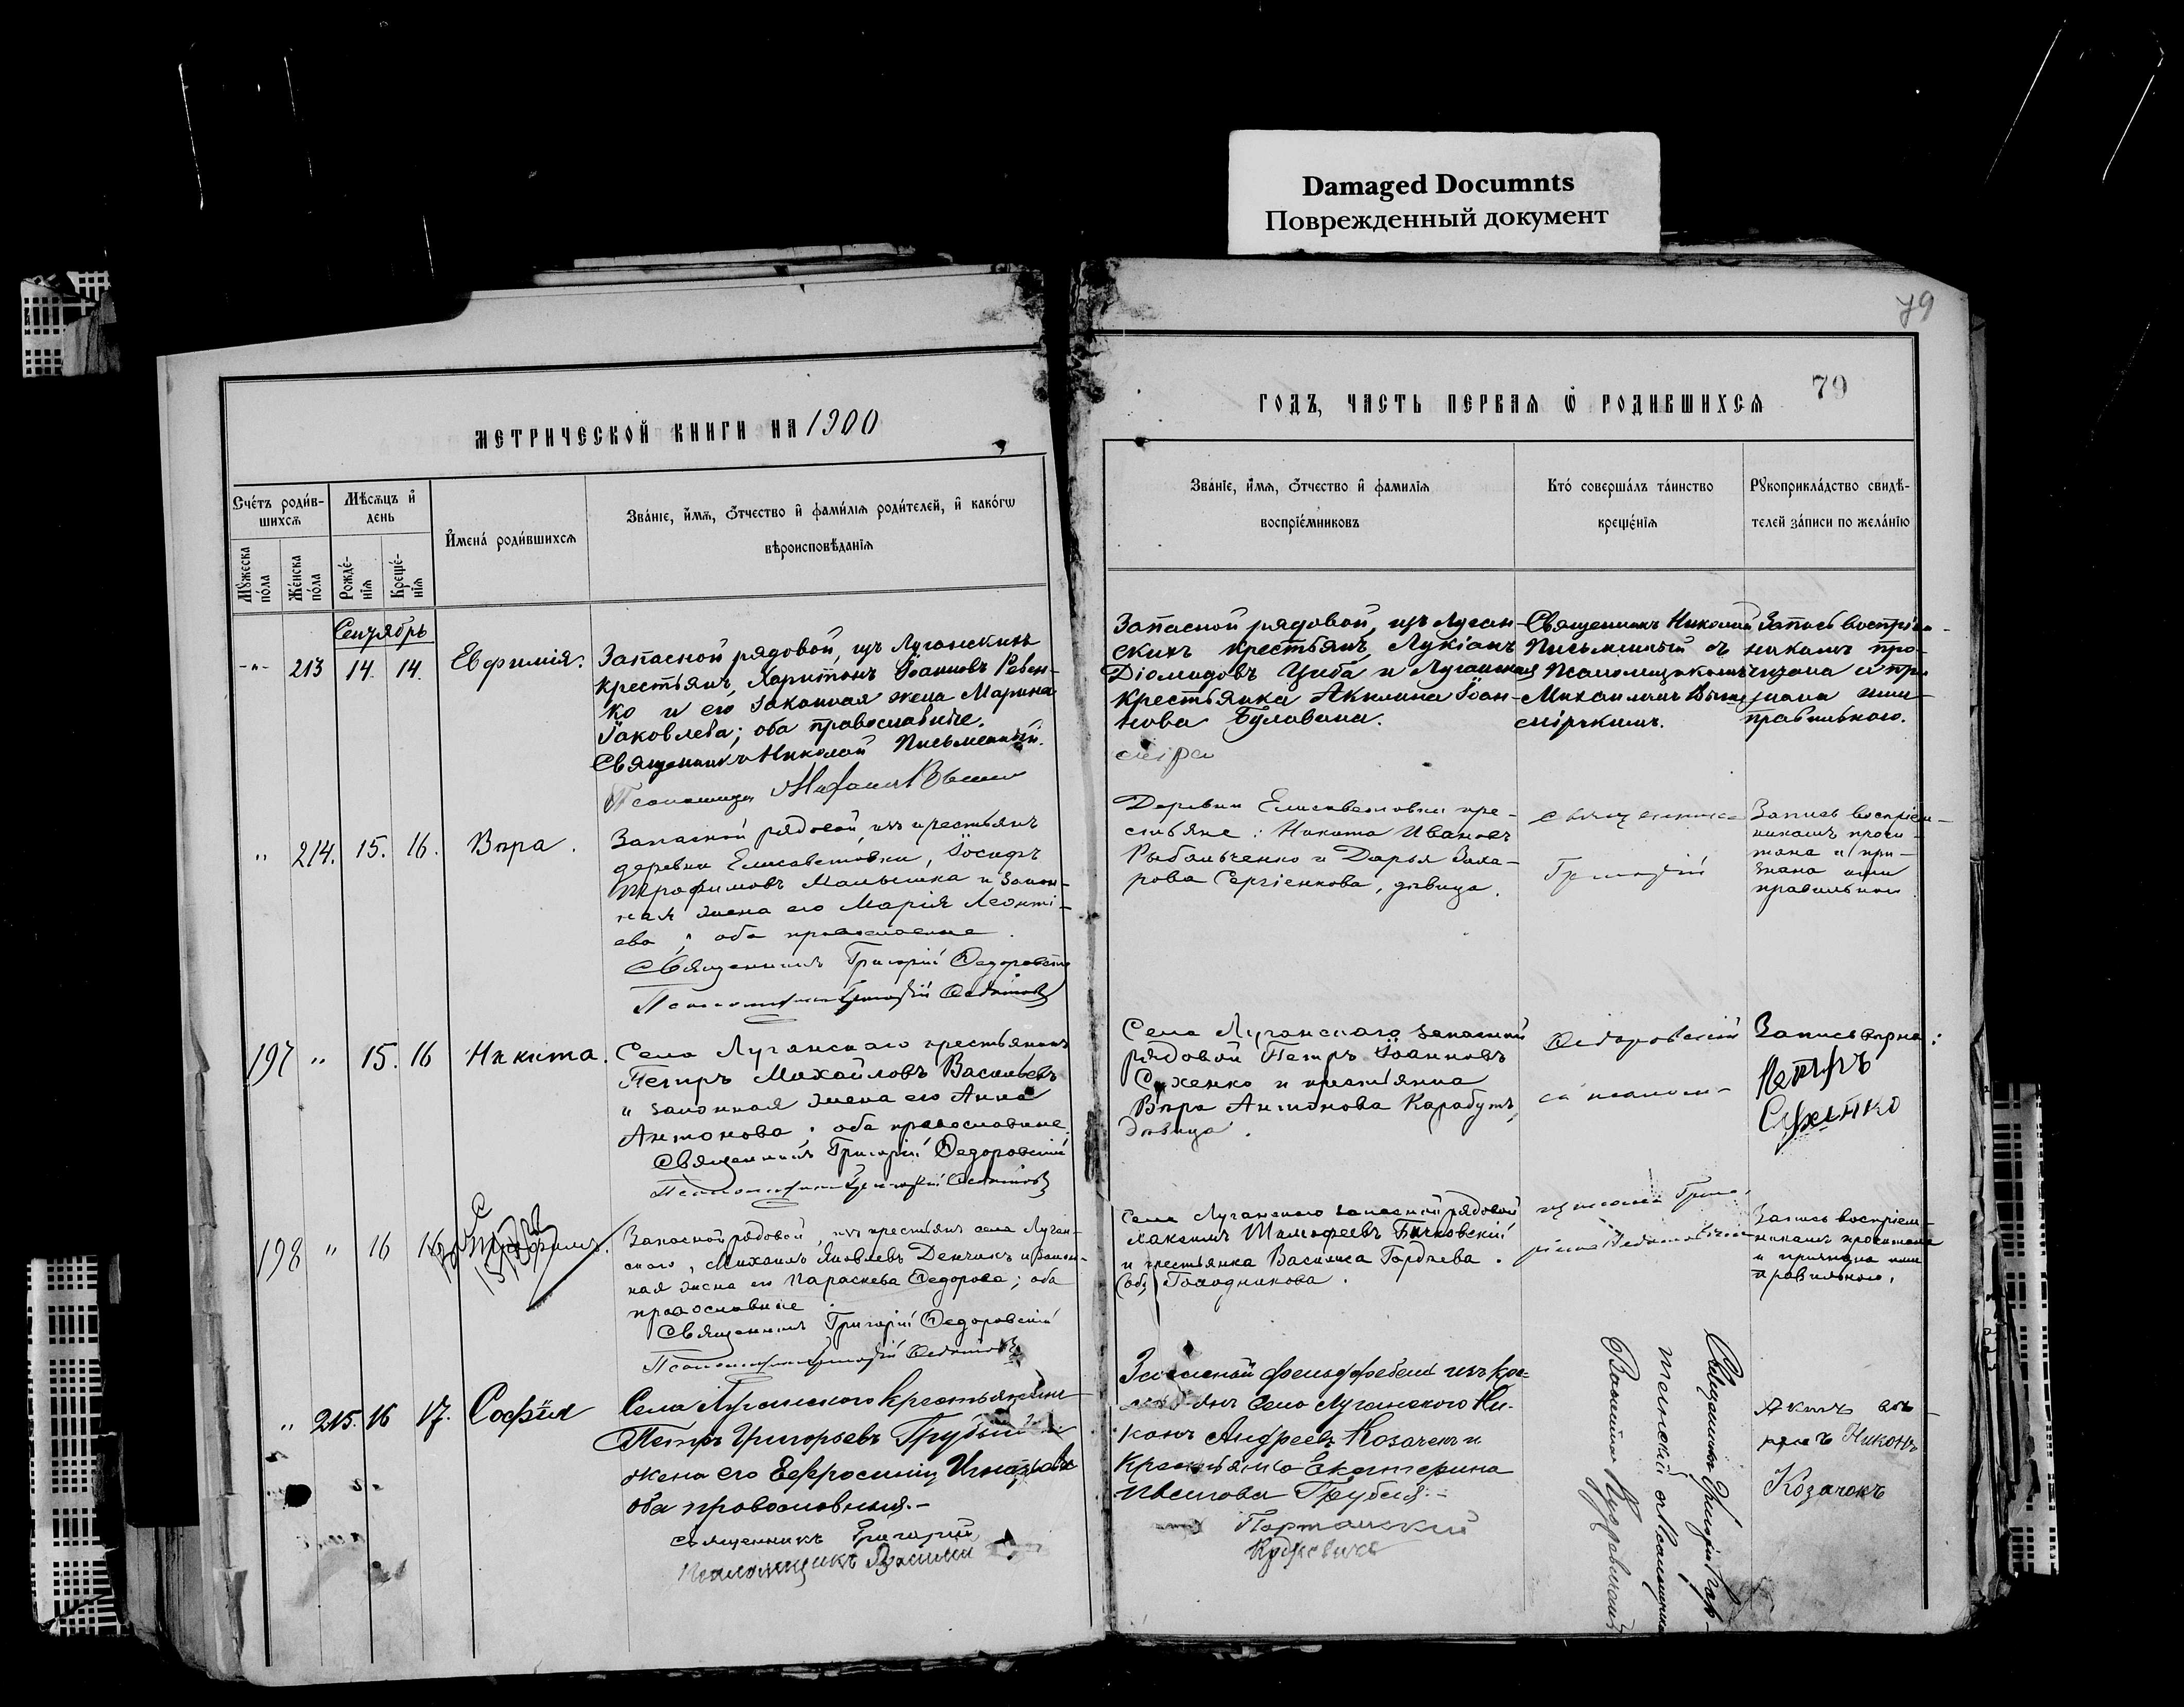 Damaged Documnts
Поврежденный документ
79
МЕТРИЧЕСКОЙ КНИГИ НА 1900
ГОДЪ, ЧАСТЬ ПЕРВАЯ Ѿ РОДИВШИХСЯ
79
Счéтъ роди́в-
шихсѧ
Мѣсѧцъ и҆
день
Мꙋжеска
по́ла
Же́нска
по́ла
Рожде́-
нїѧ
Креще́-
нїѧ
И҆мена́ роди́вшихсѧ
Зва́нїе, и҆́мѧ, ѻ҆́тчество и҆ фами́лїѧ роди́телей, и҆ како́гѡ
вѣроисповѣ́данїѧ
Зва́нїе, и҆́мѧ, ѻ҆́тчество и҆ фами́лїѧ
воспрїе́мниковъ
Кто́ соверша́лъ та́инство
креще́нїѧ
Рꙋкоприкла́дство свидѣ́-
телей за́писи по жела́нїю
Сентябрь
-"- 213 14. 14. Евфимія.
Запасной рядовой, изъ Луганскихъ
крестьянъ, Харитонъ Іоанновъ Ревен-
ко и его законная жена Марина
Іаковлева; оба православные.
Священникъ Николай Письменный.
Запасной рядовой, изъ Луган-
скихъ крестьянъ, Лукіанъ
Діомидовъ Циба и Луганская
крестьянка Акилина Іоан-
нова Булавина.
Священникъ Николай
Письменный съ
Псаломщикомъ
Михаиломъ
Запись воспріем-
никамъ про-
читана и при-
знана ими
правильною.
" 214. 15. 16. Вѣра.
Запасной рядовой, изъ крестьянъ
деревни Елисаветовки, Іосифъ
Трофимовъ Малышка и закон-
ная жена его Марія Леонті-
ева; оба православные.
Священникъ Григорій Ѳедоровскій
Псаломщикъ
Деревни Елисаветовки кре-
стьяне: Никита Ивановъ
Рыбальченко и Дарья Заха-
рова Сергіенкова, дѣвица.
Священникъ
Григорій
Запись воспріем-
никамъ прочи-
тана и при-
знана ими
правильною
197 " 15. 16 Никита.
Села Луганскаго крестьянинъ
Петръ Михайловъ Васильевъ
и законная жена его Анна
Антонова; оба православные.
Священникъ Григорій Ѳедоровскій
Псаломщикъ
Села Луганскаго запасной
рядовой Петръ Іоанновъ
Сухенко и крестьянка
Вѣра Антонова Карабутъ,
дѣвица.
Ѳедоровскій
съ псалом-
Запись вѣрна:
Петръ
Сухенко
198 " 16 16
Запасной рядовой, изъ крестьянъ села Луган-
скаго, Михаилъ Яковлевъ Денчикъ и закон-
ная жена его Параскева Ѳедорова; оба
православные.
Священникъ Григорій Ѳедоровскій
Псаломщикъ
Села Луганскаго запасной рядовой
Максимъ Тимофеевъ Бычковскій
и крестьянка Василиса Гордѣева
Голодникова.
щикомъ Григо-
Запись воспріем-
никамъ прочитана
и признана ими
правильною.
" 215. 16 17. Софія
Села Луганского крестьянинъ
Петръ Григорьевъ Грубый и
жена его Евфросинія
оба православныя.-
священникъ Григорій
псаломщикъ Василій
Запасной фельдфебель изъ кре-
стьянъ села Луганского Ни-
конъ Андреевъ Козаченъ и
крестьянка Екатерина
Грубая.-
Портанский
Священникъ Григорій Пор-
танский съ Псаломщикомъ
Василіемъ
Никонъ
Козачокъ